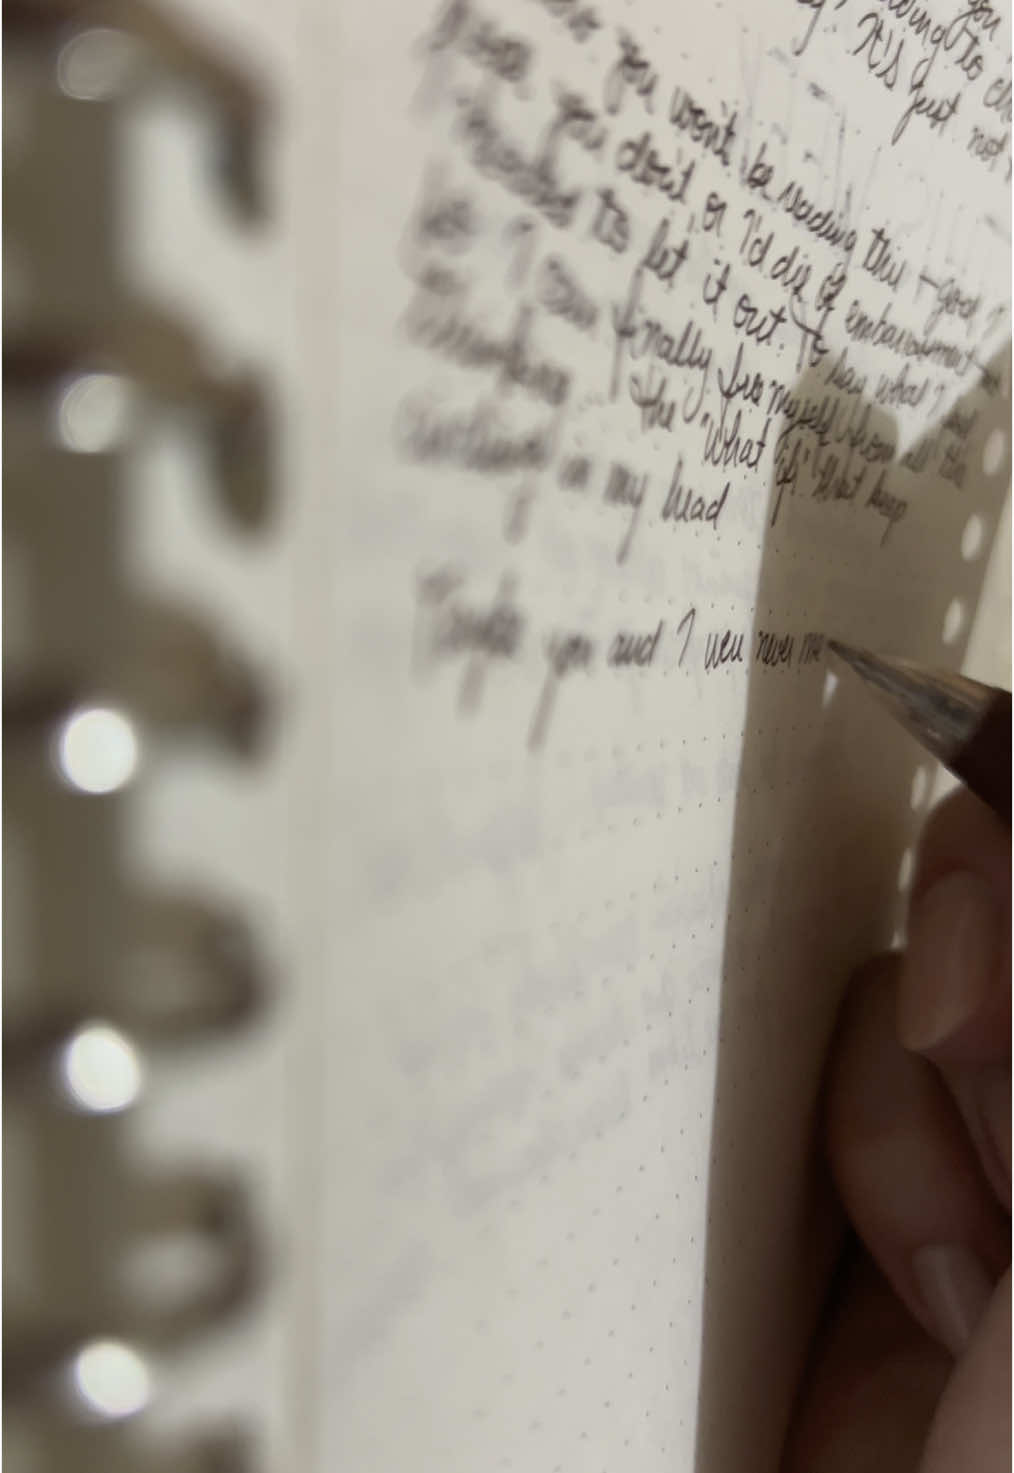 you
ding to
It's just not
you won't be reading this – god I
you don't, or I'd die of embarrassment
needed to let it out. To say what I had
I can finally free myself from all the
the "what ifs" that keep
in my head
Maybe you and I were never me